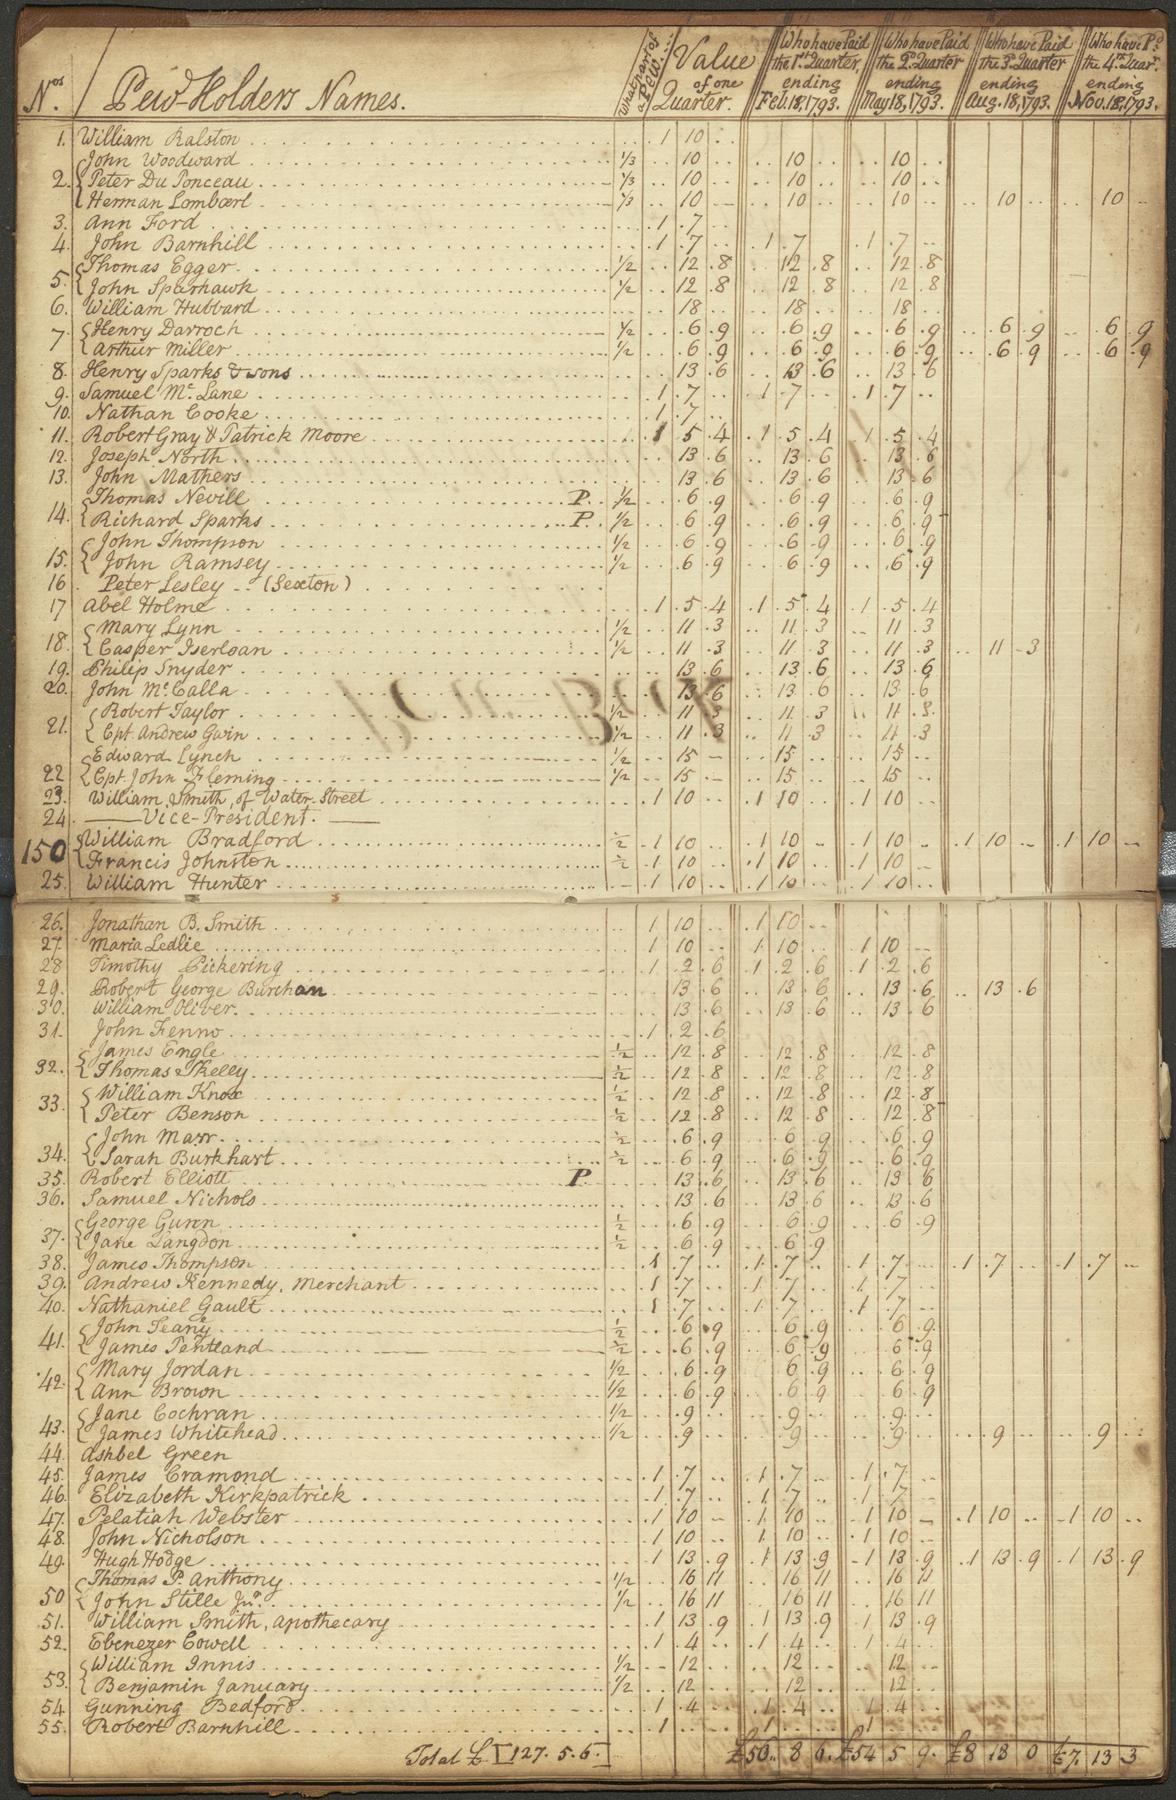 Nos. Pew-Holders Names. What part of a Pew. Value of one Quarter. Who have Paid the 1st. Quarter, ending Feb. 18, 1793. Who have Paid the 2d. Quarter ending May 18, 1793. Who have Paid the 3d. Quarter ending Aug. 18, 1793. Who have Pd. the 4th. Quar. ending Nov. 18, 1793.
1. William Ralston 1 10
John Woodward 1/3 10 10 10
2. Peter Du Ponceau 1/3 10 10 10
Herman Lombærl 1/3 10 10 10 10 10
3. Ann Ford 1 7
4. John Barnhill 1 7 1 7 1 7
Thomas Egger 1/2 12 8 12 8 12 8
5. John Sparhawk 1/2 12 8 12 8 12 8
6. William Hubbard 18 18 18
7. Henry Darroch 1/2 6 9 6 9 6 9 6 9 6 9
Arthur Miller 1/2 6 9 6 9 6 9 6 9 6 9
8. Henry Sparks & sons 13 6 13 6 13 6
9. Samuel Mc. Lane 1 7 1 7 1 7
10. Nathan Cooke 1 7
11. Robert Gray & Patrick Moore 1 5 4 1 5 4 1 5 4
12. Joseph North 13 6 13 6 13 6
13. John Mathers 13 6 13 6 13 6
Thomas Nevill P. 1/2 6 9 6 9 6 9
14. Richard Sparks P. 1/2 6 9 6 9 6 9
John Thompson 1/2 6 9 6 9 6 9
15. John Ramsey 1/2 6 9 6 9 6 9
16 Peter Lesley -- (Sexton)
17 Abel Holme 1 5 4 1 5 4 1 5 4
Mary Lynn 1/2 11 3 11 3 11 3
18. Casper Iserloan 1/2 11 3 11 3 11 3 11 3
19. Philip Snyder 13 6 13 6 13 6
20. John Mc. Calla 13 6 13 6 13 6
Robert Taylor 1/2 11 3 11 3 11 3
21. Cpt. Andrew Gwin 1/2 11 3 11 3 11 3
Edward Lynch 1/2 15 15 15
22 Cpt John Fleming 1/2 15 15 15
23. William Smith, of Water Street 1 10 1 10 1 10
24. Vice-President.
150 William Bradford 1/2 1 10 1 10 1 10 1 10 1 10
Francis Johnston 1/2 1 10 1 10 1 10
25. William Hunter 1 10 1 10 1 10
26. Jonathan B. Smith 1 10 1 10
27. Maria Ledlie 1 10 1 10 1 10
28 Timothy Pickering 1 2 6 1 2 6 1 2 6
29. Robert George Burchan 13 6 13 6 13 6 13 6
30. William Oliver 13 6 13 6 13 6
31. John Fenno 1 2 6
James Engle 1/2 12 8 12 8 12 8
32. Thomas Skelly 1/2 12 8 12 8 12 8
33. William Knox 1/2 12 8 12 8 12 8
Peter Benson 1/2 12 8 12 8 12 8
John Marr 1/2 6 9 6 9 6 9
34. Sarah Burkhart 1/2 6 9 6 9 6 9
35. Robert Elliott P 13 6 13 6 13 6
36. Samuel Nichols 13 6 13 6 13 6
George Guren 1/2 6 9 6 9 6 9
37. Jane Langdon 1/2 6 9 6 9
38. James Thompson 1 7 1 7 1 7 1 7 1 7
39. Andrew Kennedy, Merchant 1 7 1 7 1 7
40. Nathaniel Gault 1 7 1 7 1 7
John 1/2 6 9 6 9 6 9
41. James Pentland 1/2 6 9 6 9 6 9
Mary Jordan 1/2 6 9 6 9 6 9
42. Ann Brown 1/2 6 9 6 9 6 9
Jane Cochran 1/2 9 9 9
43. James Whitehead 1/2 9 9 9 9 9
44. Ashbel Green
45. James Cramond 1 7 1 7 1 7
46. Elizabeth Kirkpatrick 1 7 1 7 1 7
47. Pelatiah Webster 1 10 1 10 1 10 1 10 1 10
48. John Nicholson 1 10 1 10 1 10
49. Hugh Hodge 1 13 9 1 13 9 1 13 9 1 13 9 1 13 9
Thomas P. Anthony 1/2 16 11 16 11 16 11
50 John Stille Junr. 1/2 16 11 16 11 16 11
51. William Smith, Apothecary 1 13 9 1 13 9 1 13 9
52. Ebenezer Cowell 1 4 1 4 1 4
William Innis 1/2 12 12 12
53. Benjamin January 1/2 12 12 12
54 Gunning Bedford 1 4 1 4 1 4
55. Robert Barnhill 1 1 1
Total £ 127. 5. 6. £56. 8 6. £54 5 9. £8 18 0 £7. 13 3